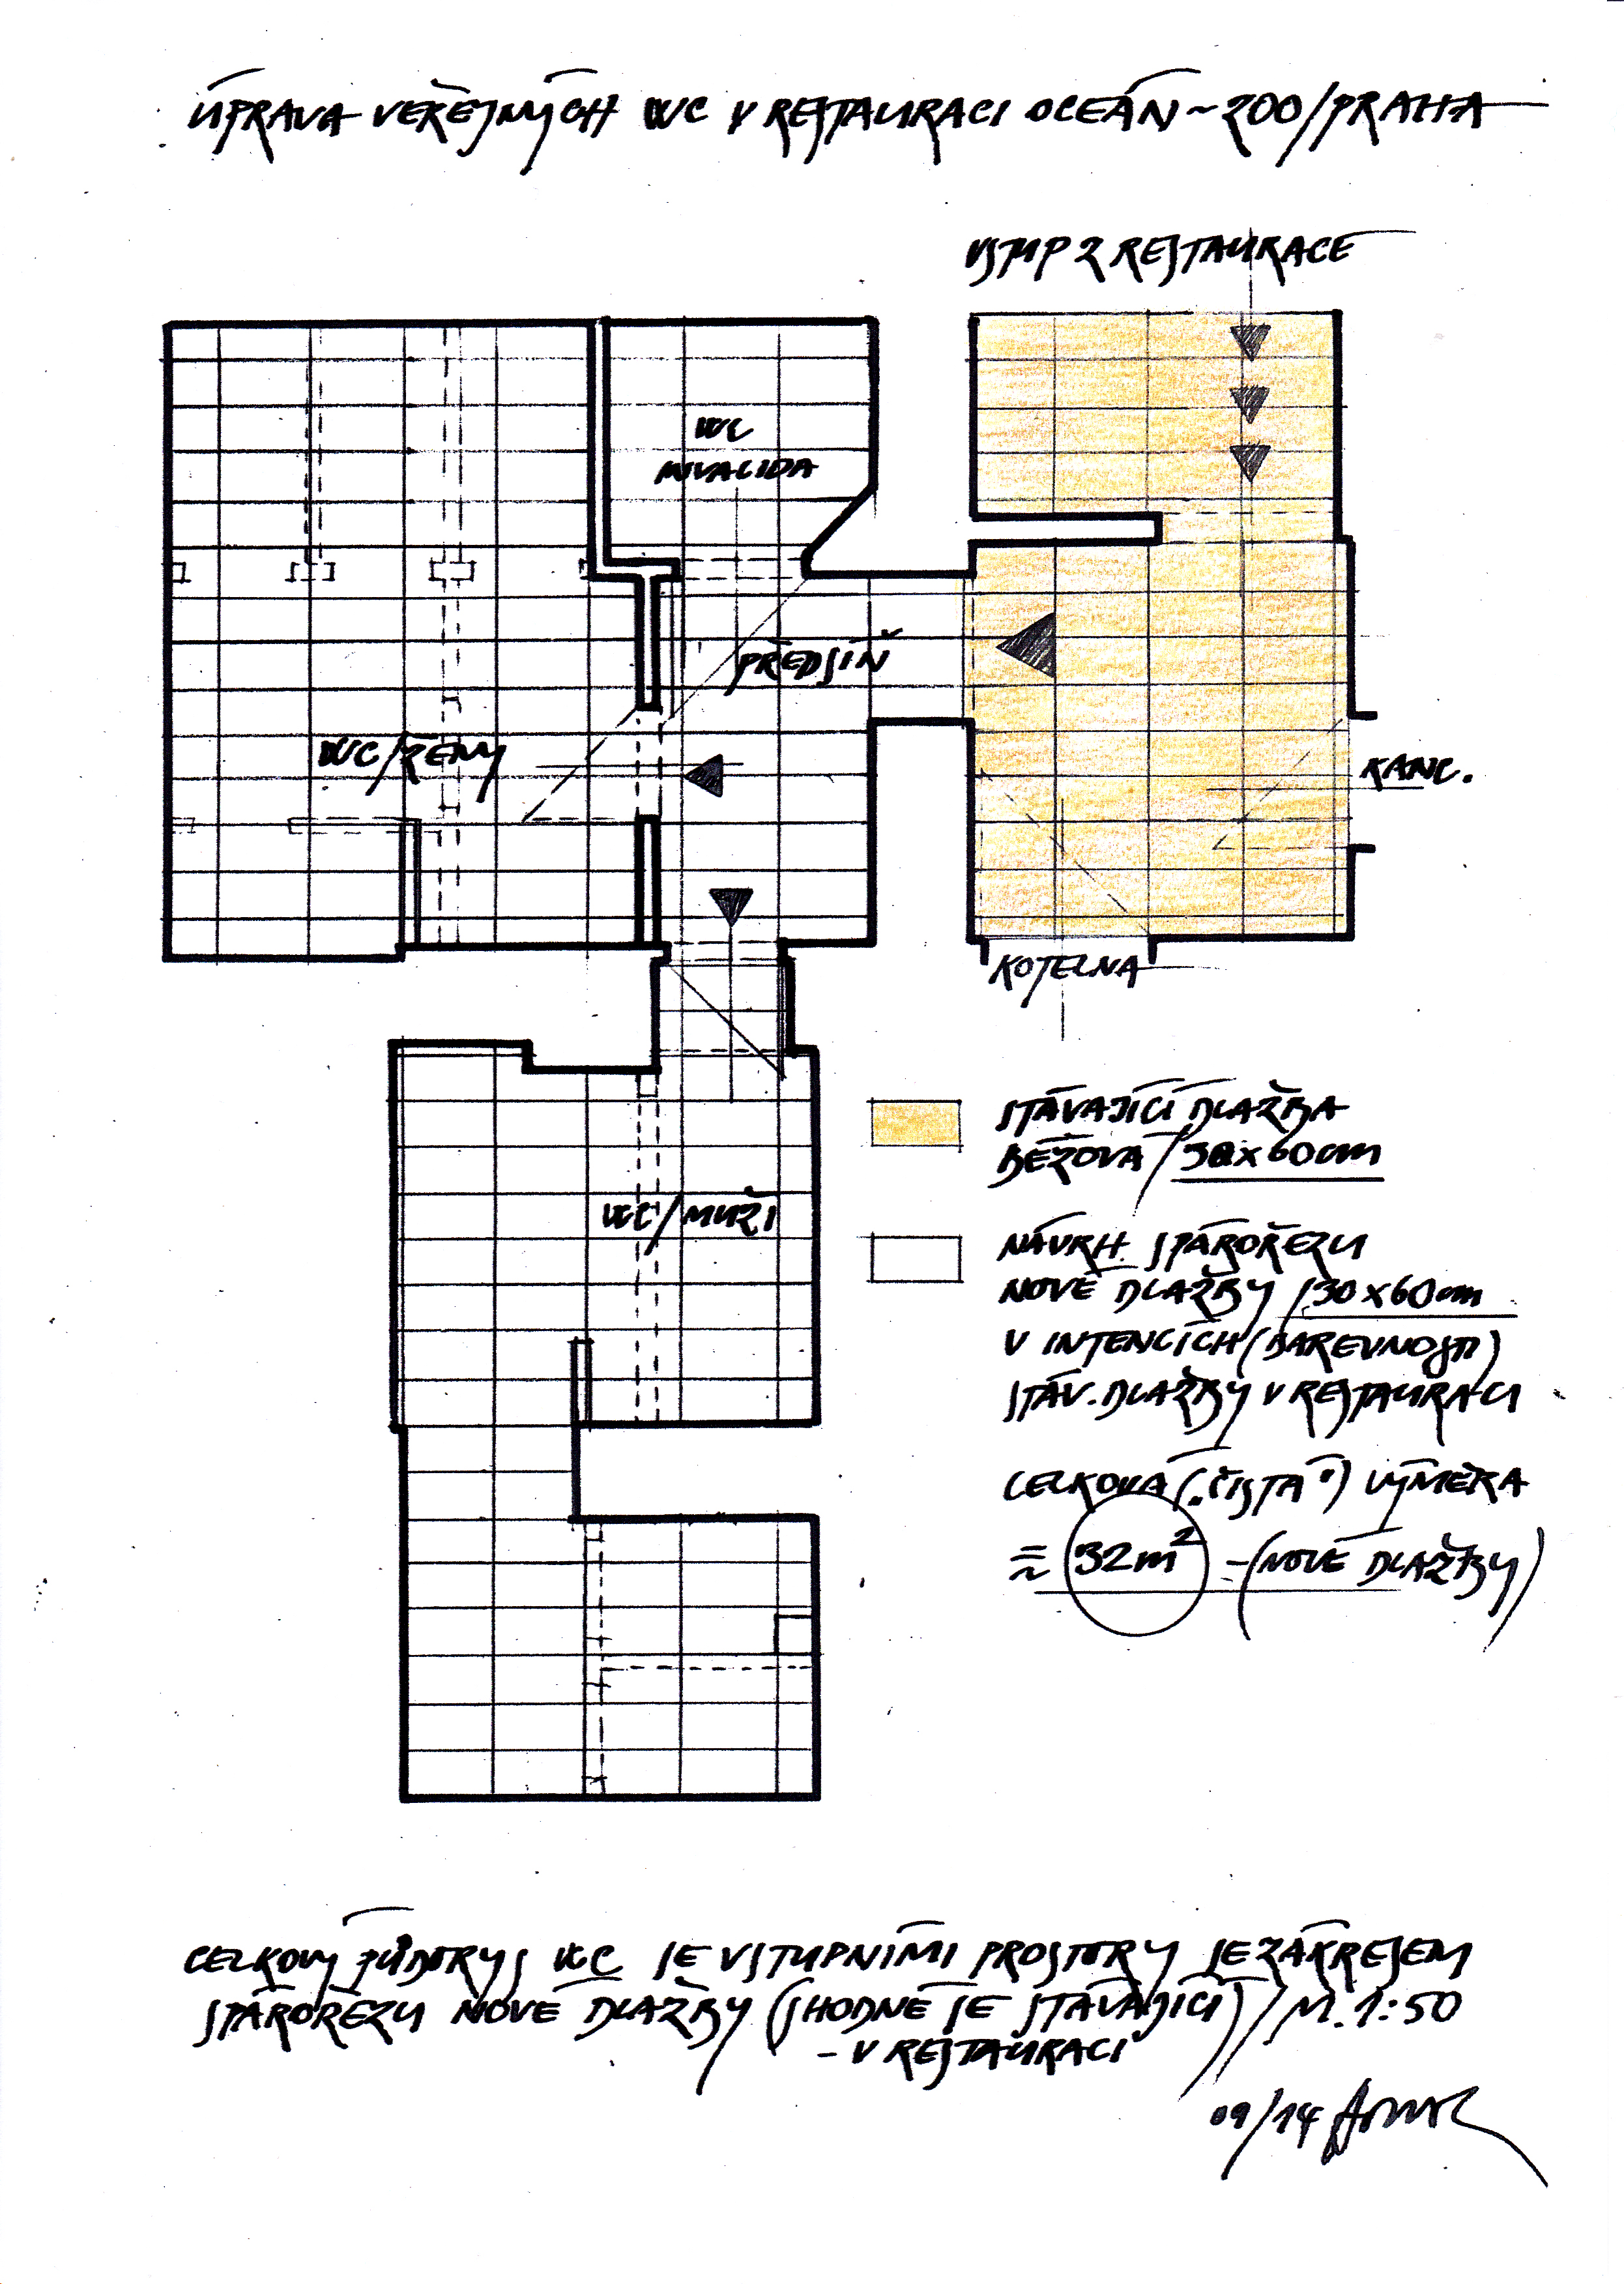 ÚPRAVA VEŘEJNÝCH WC V RESTAURACI OCEÁN ~ 200/PRAHA
VSTUP Z RESTAURACE
WC
INVALIDA
PŘEDSÍŇ
WC/ŽENY
KANC.
KOTELNA
STÁVAJÍCÍ DLAŽBA
BÉŽOVÁ/30x60cm
WC/MUŽI
NÁVRH SPÁROŘEZU
NOVÉ DLAŽBY/30x60cm
V INTENCÍCH (BAREVNOSTI)
STÁV. DLAŽBY V RESTAURACI
CELKOVÁ („ČISTÁ") VÝMĚRA
≈ 32m² - (NOVÉ DLAŽBY)
CELKOVÝ PŮDORYS WC SE VSTUPNÍMI PROSTORY SE ZÁKRESEM
SPÁROŘEZU NOVÉ DLAŽBY (SHODNÉ SE STÁVAJÍCÍ)//M. 1:50
- V RESTAURACI
09/14